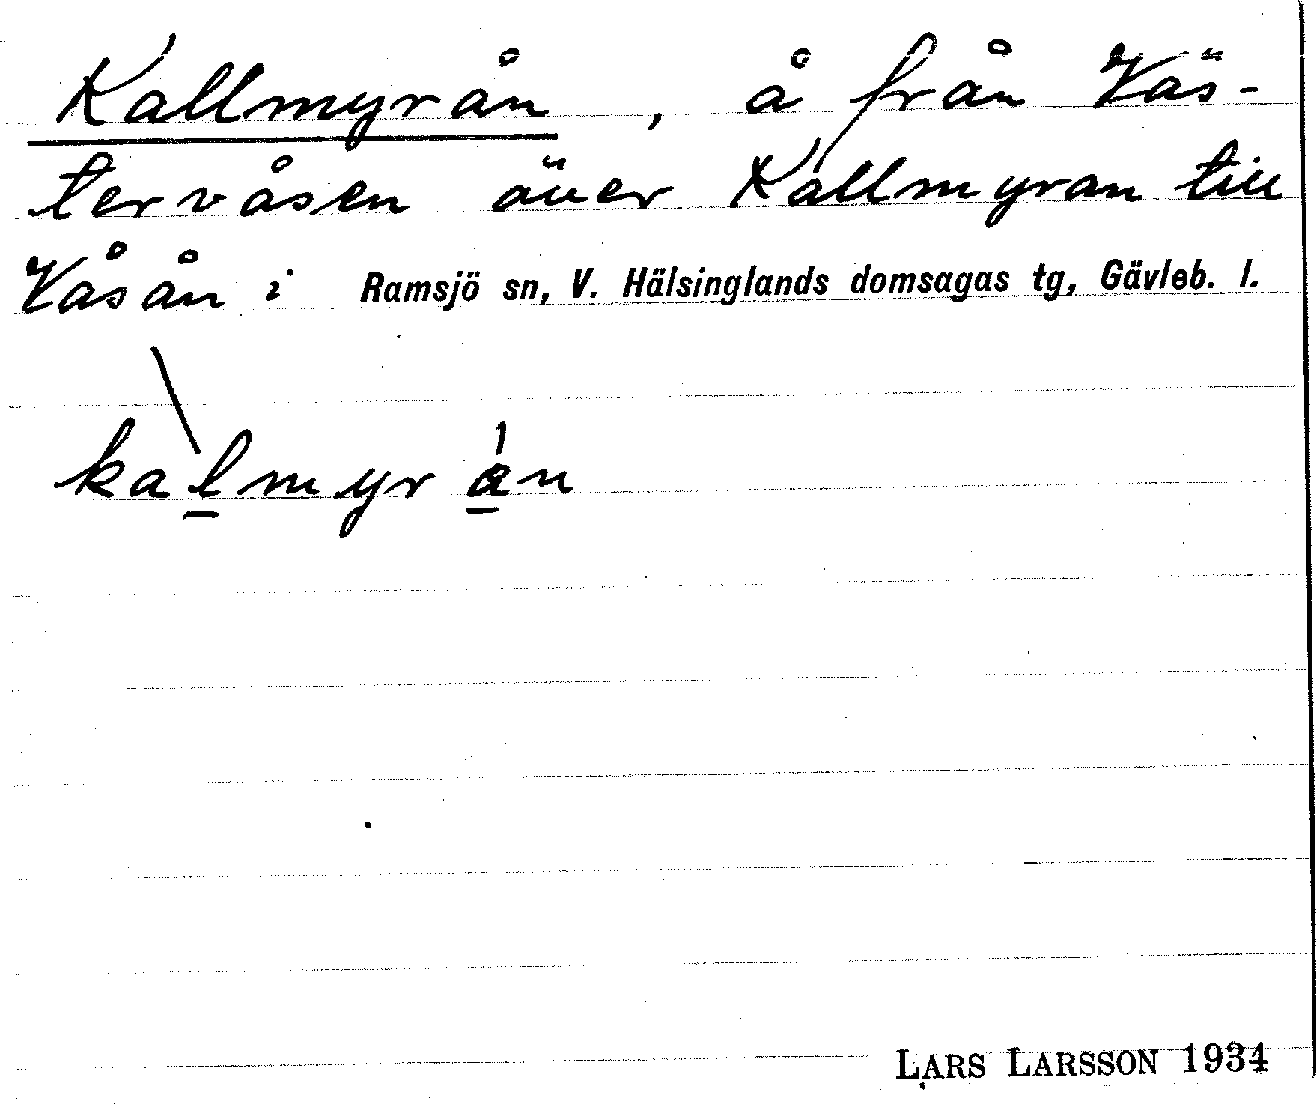 Kallmyrån, å från Väs-
tervåsen över Kallmyran till
Våsån i Ramsjö sn, V. Hälsinglands domsagas tg, Gävleb. l.
kalmyrån
LARS LARSSON 1934